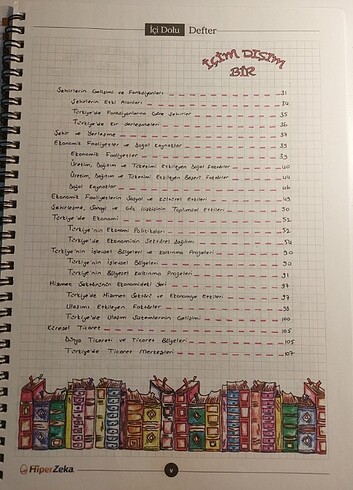 İçi Dolu Defter
İÇİM DIŞIM
BİR
Şehirlerin Gelişimi ve Fonksiyonları 31
Şehirlerin Etki Alanları 34
Türkiye'de Fonksiyonlarına Göre Şehirler 35
Türkiye'de Kır Yerleşmeleri 36
Şehir ve Yerleşme 37
Ekonomik Faaliyetler ve Doğal Kaynaklar 39
Ekonomik Faaliyetler 39
Üretim, Dağıtım ve Tüketimi Etkileyen Doğal Faktörler
Üretim, Dağıtım ve Tüketimi Etkileyen Beşeri Faktörler 44
Doğal Kaynaklar 46
Ekonomik Faaliyetlerin Sosyal ve Kültürel Etkileri 49
Şehirleşme, Sanayi ve Göç İlişkisinin Toplumsal Etkileri 50
Türkiye'de Ekonomi 52
Türkiye'nin Ekonomi Politikaları 52
Türkiye'de Ekonominin Sektörel Dağılımı 54
Türkiye'nin İşlevsel Bölgeleri ve Kalkınma Projeleri 90
Türkiye'nin İşlevsel Bölgeleri 90
Türkiye'nin Bölgesel Kalkınma Projeleri 91
Hizmet Sektörünün Ekonomideki Yeri 97
Türkiye'de Hizmet Sektörü ve Ekonomiye Etkileri 97
Ulaşımı Etkileyen Faktörler 98
Türkiye'de Ulaşım Sistemlerinin Gelişimi 100
Küresel Ticaret 105
Dünya Ticareti ve Ticaret Bölgeleri 105
Türkiye'de Ticaret Merkezleri 107
HiperZeka
V